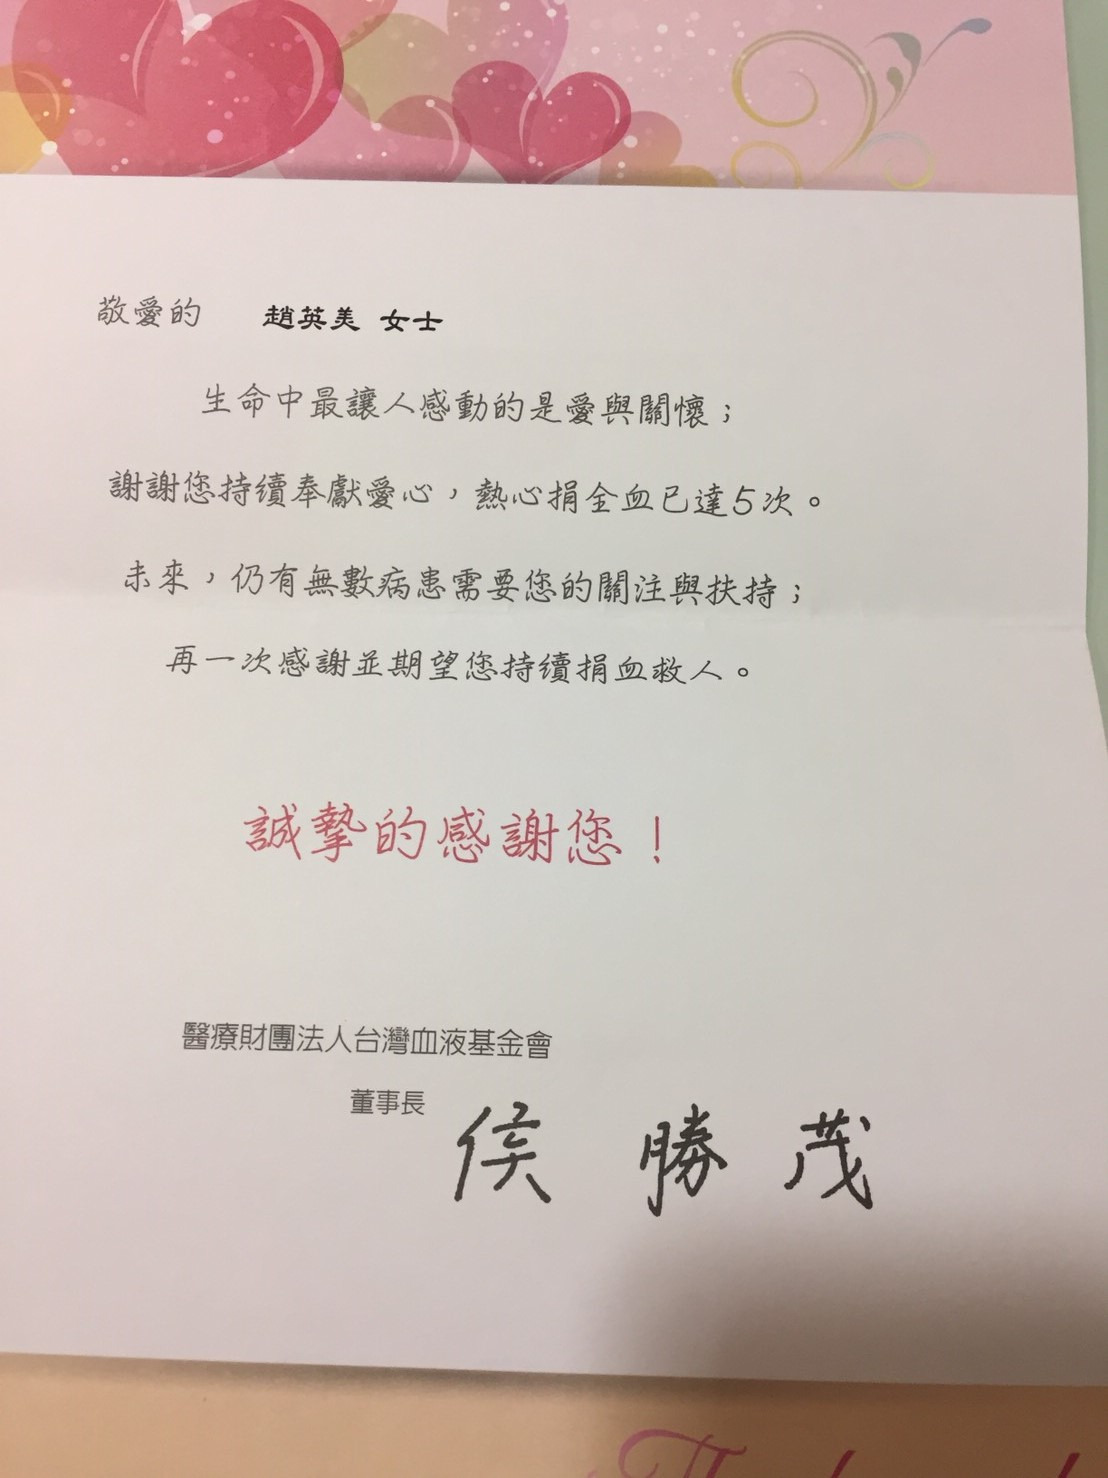 敬愛的 趙英美 女士
生命中最讓人感動的是愛與關懷；
謝謝您持續奉獻愛心，熱心捐全血已達5次。
未來，仍有無數病患需要您的關注與扶持；
再一次感謝並期望您持續捐血救人。
誠摯的感謝您！
醫療財團法人台灣血液基金會
董事長 侯勝茂